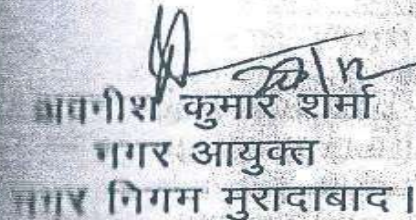 20/12
अवनीश कुमार शर्मा
नगर आयुक्त
नगर निगम मुरादाबाद।